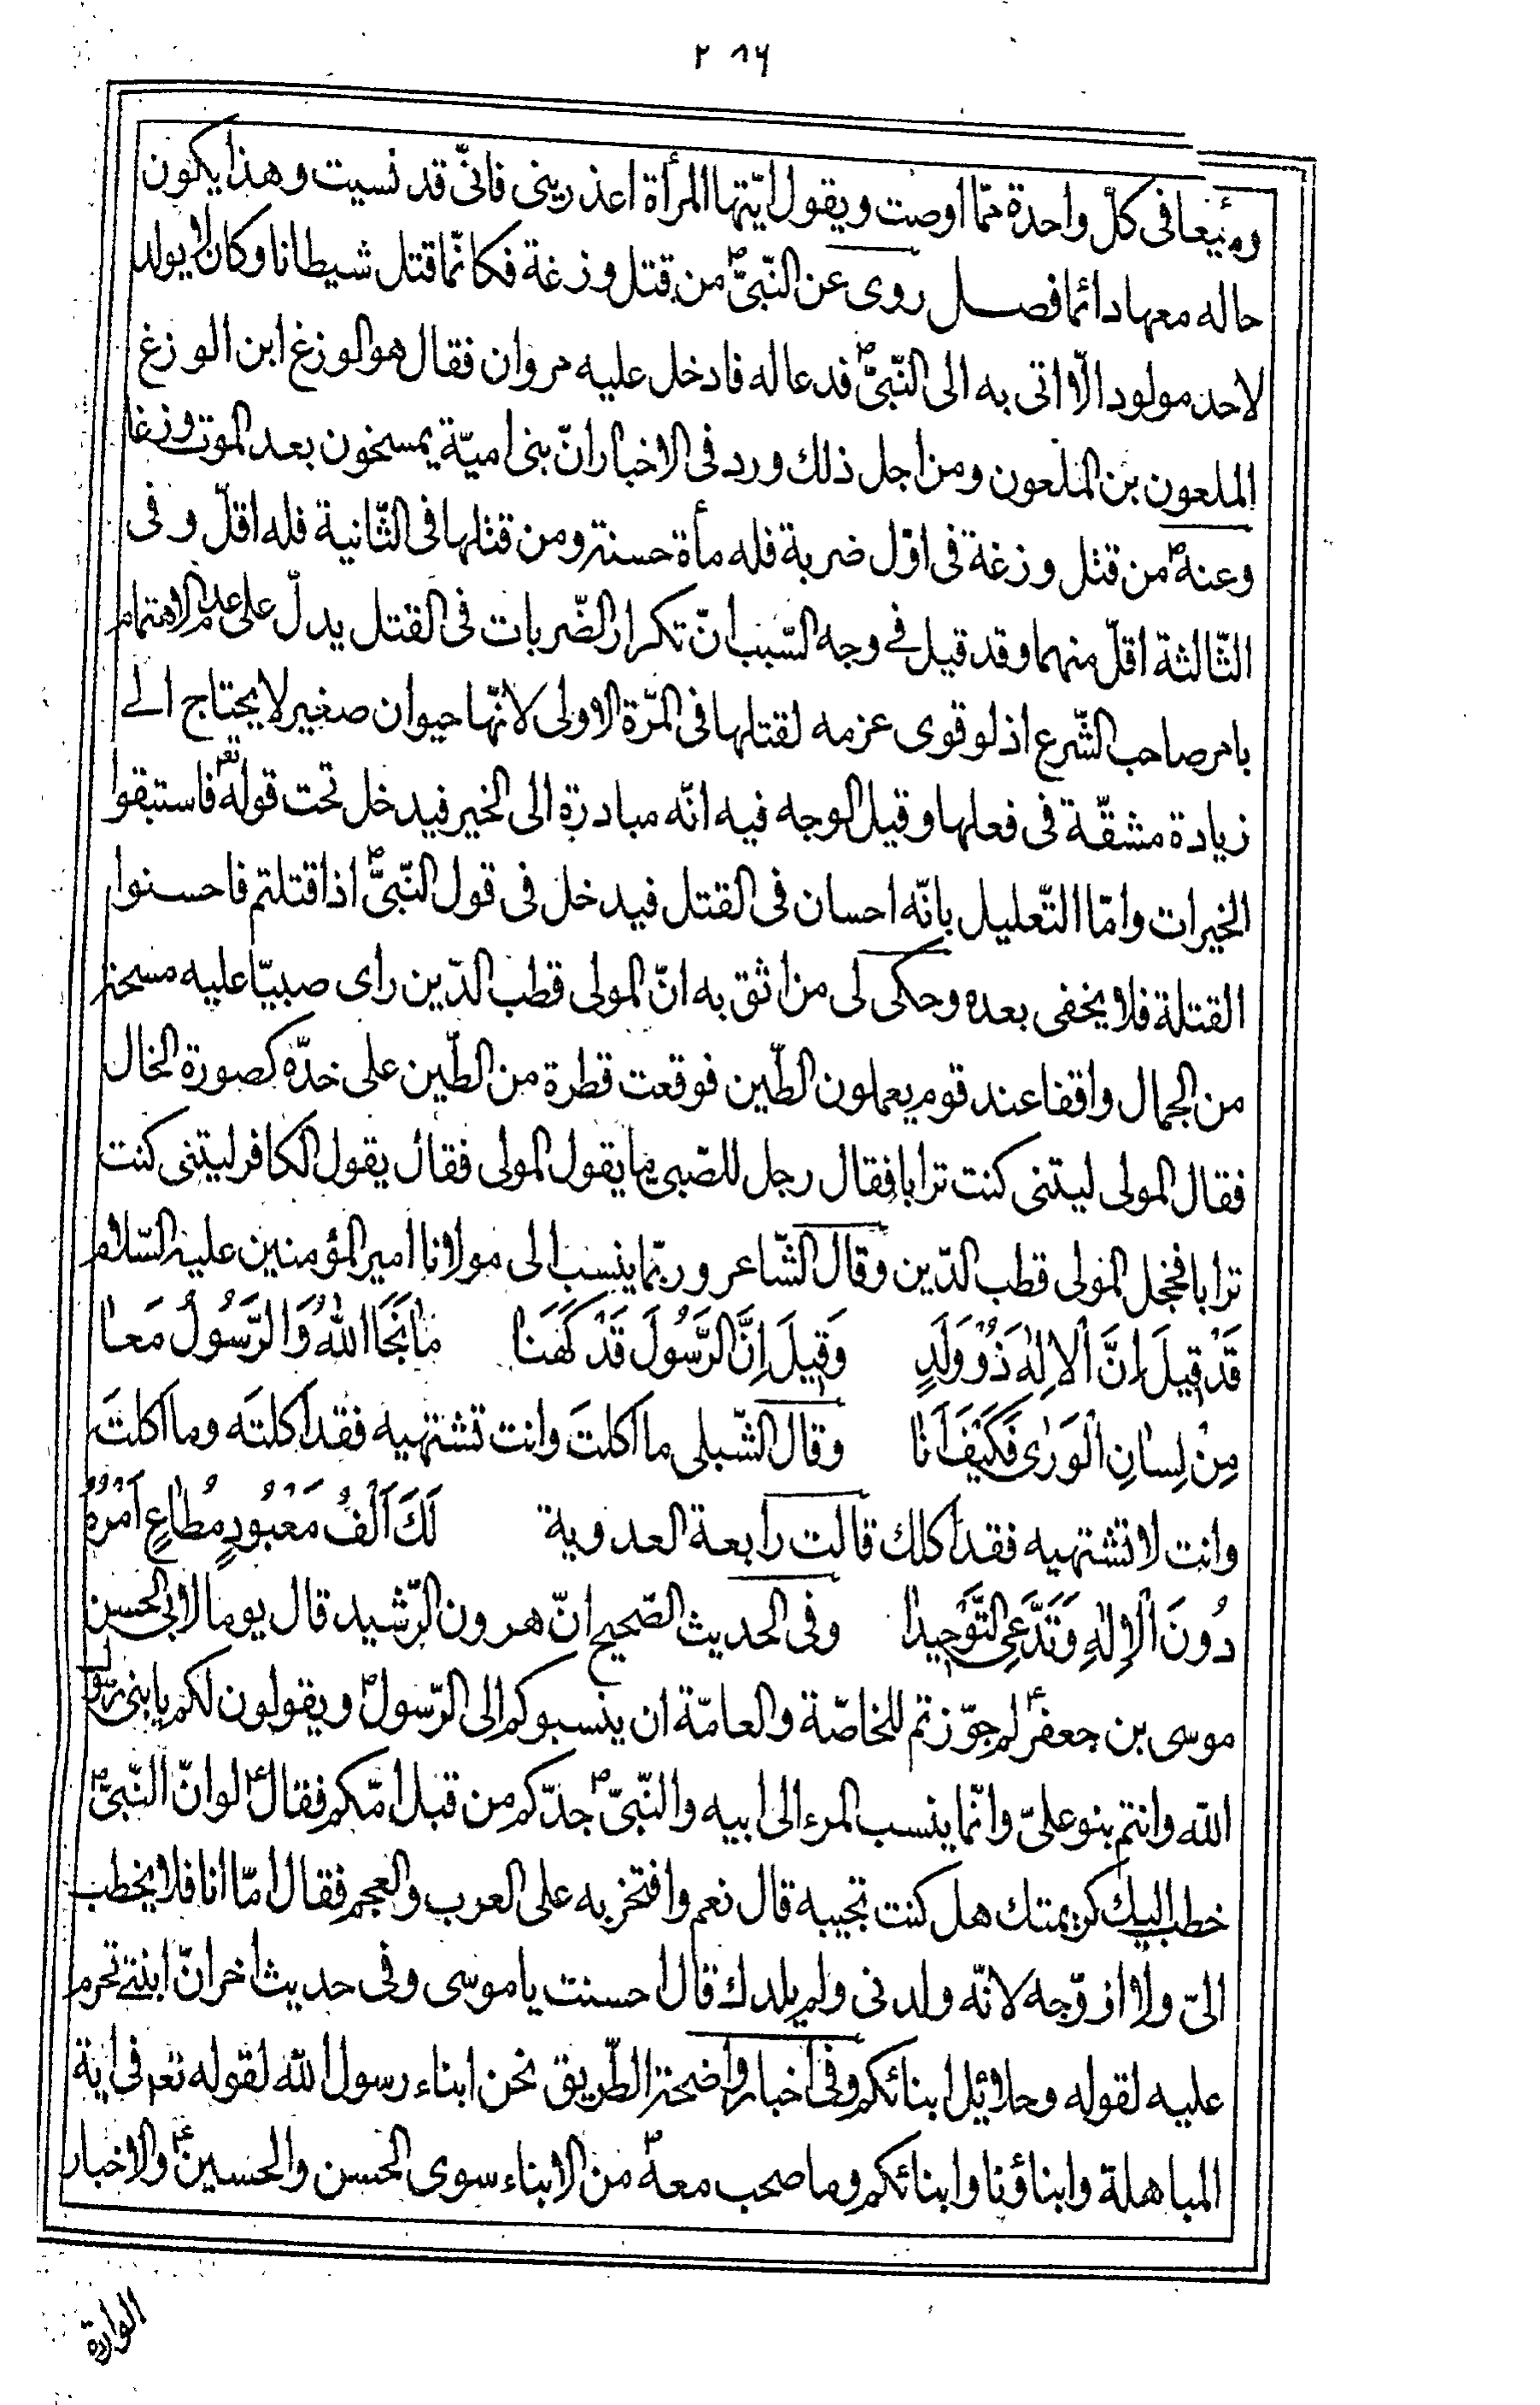 ٢٨٦
في كلّ واحدة ممّا اوصت ويقول ايّتها المرأة اعذريني فانّى قد نسيت وهذا يكون
حاله معها دائما فصل روى عن النّبىّ ص من قتل وزغة فكانّما قتل شيطانا وكان لا يولد
لاحد مولود الّا اتى به الى النّبىّ ص فدعا له فادخل عليه مروان فقال هو الوزغ ابن الوزغ
الملعون بن الملعون ومن اجل ذلك ورد فى الاخبار انّ بنى اميّة يمسخون بعد الموت وزغا
وعنه ص من قتل وزغة فى اوّل ضربة فله مأة حسنة ومن قتلها فى الثّانية فله اقلّ وفى
الثّالثة اقلّ منهما وقد قيل فے وجه السّبب انّ تكرار الضّربات فى القتل يدلّ على عدم الاهتمام
بامر صاحب الشّرع اذ لو قوى عزمه لقتلها فى المرّة الاولى لانّها حيوان صغير لا يحتاج الے
زيادة مشقّة فى فعلها وقيل الوجه فيه انّه مبادرة الى الخير فيدخل تحت قوله تع فاستبقوا
الخيرات وامّا التّعليل بانّه احسان فى القتل فيدخل فى قول النّبىّ ص اذا قتلتم فاحسنوا
القتلة فلا يخفى بعده وحكى لى من اثق به انّ المولى قطب الدّين راى صبيّا عليه مسحة
من الجمال واقفا عند قوم يعملون الطّين فوقعت قطرة من الطّين على خدّه كصورة الخال
فقال المولى ليتنى كنت ترابا فقال رجل للصّبى ما يقول المولى فقال يقول الكافر ليتنى كنت
ترابا فخجل المولى قطب الدّين وقال الشّاعر وربّما ينسب الى مولانا امير المؤمنين عليه السّلام
قَدْ قِيلَ اِنَّ اْلاِلٰهَ ذُو وَلَدٍ وَقِيلَ اِنَّ الرَّسُولَ قَدْ كَهَنَا مٰا نَجَا اللّٰهُ وَالرَّسُولُ مَعًا
مِنْ لِسانِ الْوَرٰى فَكَيْفَ اَنَا وقال الشّبلى ما اكلتَ وانت تشتهيه فقد اكلتَه وما اكلتَ
وانت لا تشتهيه فقد اكلك قالت رابعة العدوية لَكَ اَلْفُ مَعْبُودٍ مُطاعٍ اَمْرُهُ
دُونَ اْلاِلٰهِ وَتَدَّعِى التَّوْحِيدا وفى الحديث الصّحيح انّ هرون الرّشيد قال يوما لابى الحسن
موسى بن جعفر ع لم جوّزتم للخاصّة والعامّة ان ينسبوكم الى الرّسول ص ويقولون لكم يا بنى رسول
الله وانتم بنو علىّ وانّما ينسب المرء الى ابيه والنّبىّ ص جدّكم من قبل امّكم فقال ع لو انّ النّبىّ ص
خطب اليك كريمتك هل كنت تجيبه قال نعم وافتخر به على العرب والعجم فقال امّا انا فلا يخطب
الىّ ولا ازوّجه لانّه ولدنى ولم يلدك قال احسنت يا موسى وفى حديث اخر انّ ابنتے تحرم
عليه لقوله وحلائل ابنائكم وفى اخبار واضحة الطّريق نحن ابناء رسول الله لقوله تعم فى اية
المباهلة وابناؤنا وابنائكم وما صحب معه ص من الابناء سوى الحسن والحسين ع والاخبار
الواردة